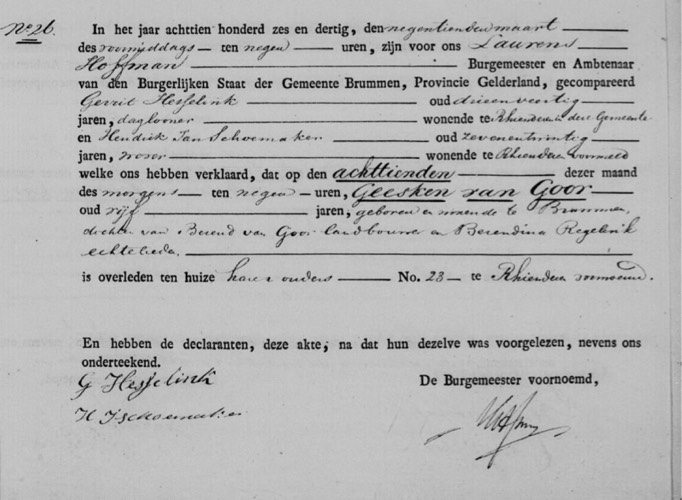 No. 26.
In het jaar achttien honderd zes en dertig, den negentienden maart
des voormiddags ten negen uren, zijn voor ons Laurens
Hoffman Burgemeester en Ambtenaar
van den Burgerlijken Staat der Gemeente Brummen, Provincie Gelderland, gecompareerd
Gerrit Hesselink oud drieenveertig
jaren, daglooner wonende te Rhienderen in deze Gemeente
en Hendrik Jan Schoemaker oud zevenentwintig
jaren, wonende te Rhienderen voormeld
welke ons hebben verklaard, dat op den achttienden dezer maand
des morgens ten negen uren, Geesken van Goor
oud vijf jaren, geboren en wonende te Brummen,
dochter van Berend van Goor landbouwer en Berendina Regelink
echtelieden
is overleden ten huize harer ouders No. 23 te Rhienderen voornoemd.
En hebben de declaranten, deze akte, na dat hun dezelve was voorgelezen, nevens ons
onderteekend.
G Hesselink
De Burgemeester voornoemd,
H J Schoemaker